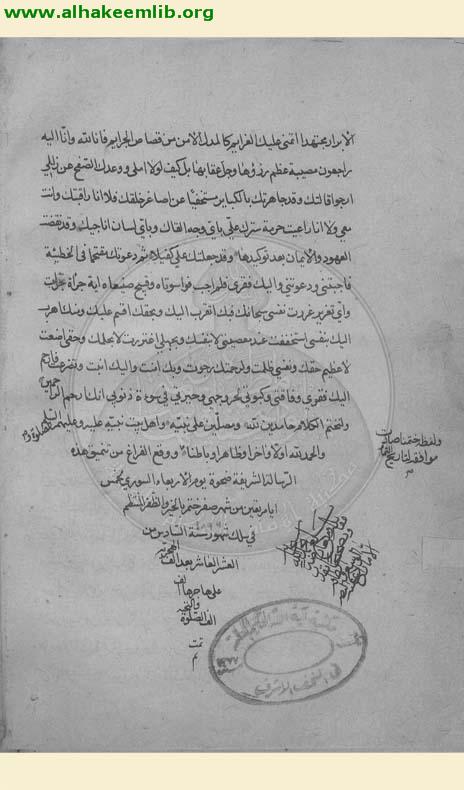 www.alhakeemlib.org
الابرار مجتهدا اتمنى عليك الغرايم كالمدل الامن من قصاص الجرايم فانا لله وانا اليه
راجعون مصيبة عظم رزؤها وجل عقابها بل كيف لولا املى ووعدك الصفح عن زللي
ارجو اقالتك وقد جاهرتك بالكبائر مستخفيا عن اصاغر خلقك فلا انا راقبتك وانت
معي ولا انا راعيت حرمة سترك علي باي وجه القاك وباي لسان اناجيك وقد نقضت
العهود والايمان بعد توكيدها وقد جعلتك علي كفيلا ثم دعوتك مقتحما في الخطيئة
فاجبتني ودعوتني واليك فقري فلم اجب فواسوتاه وقبيح صنيعاه اية جرأة تجرأت
واي تغرير غررت نفسي سبحانك فبك اتقرب اليك وبحقك اقسم عليك ومنك اهرب
اليك بنفسي استخففت عند معصيتي لا بنفسك وبجهلي اغتررت لا بحلمك وحقي اضعت
لا عظيم حقك ونفسي ظلمت ولرحمتك رجوت وبك امنت واليك انبت وتضرعت فارحم
اليك فقري وفاقتي وكبوتي لحر وجهي وحيرتي في سوءة ذنوبي انك ارحم الراحمين
ولنختم الكلام حامدين لله ومصلين على نبيه واهل بيت نبيه عليه وعليهم
والحمد لله اولا واخرا وظاهرا وباطنا ووقع الفراغ من تنميق هذه
الرسالة الشريفة ضحوة يوم الاربعاء
ايام بقين من شهر صفر ختم بالخير والظفر المنتظم
في سلك شهور سنة السادس من
العشر العاشر بعد الالف
الهجرية
على هاجرها الف
الف الصلوة
والتحية
تمت
م
ولفظ ختمنا صار
موافقا لتاريخ
مكتبة آية الله الحكيم العامة
في النجف الاشرف